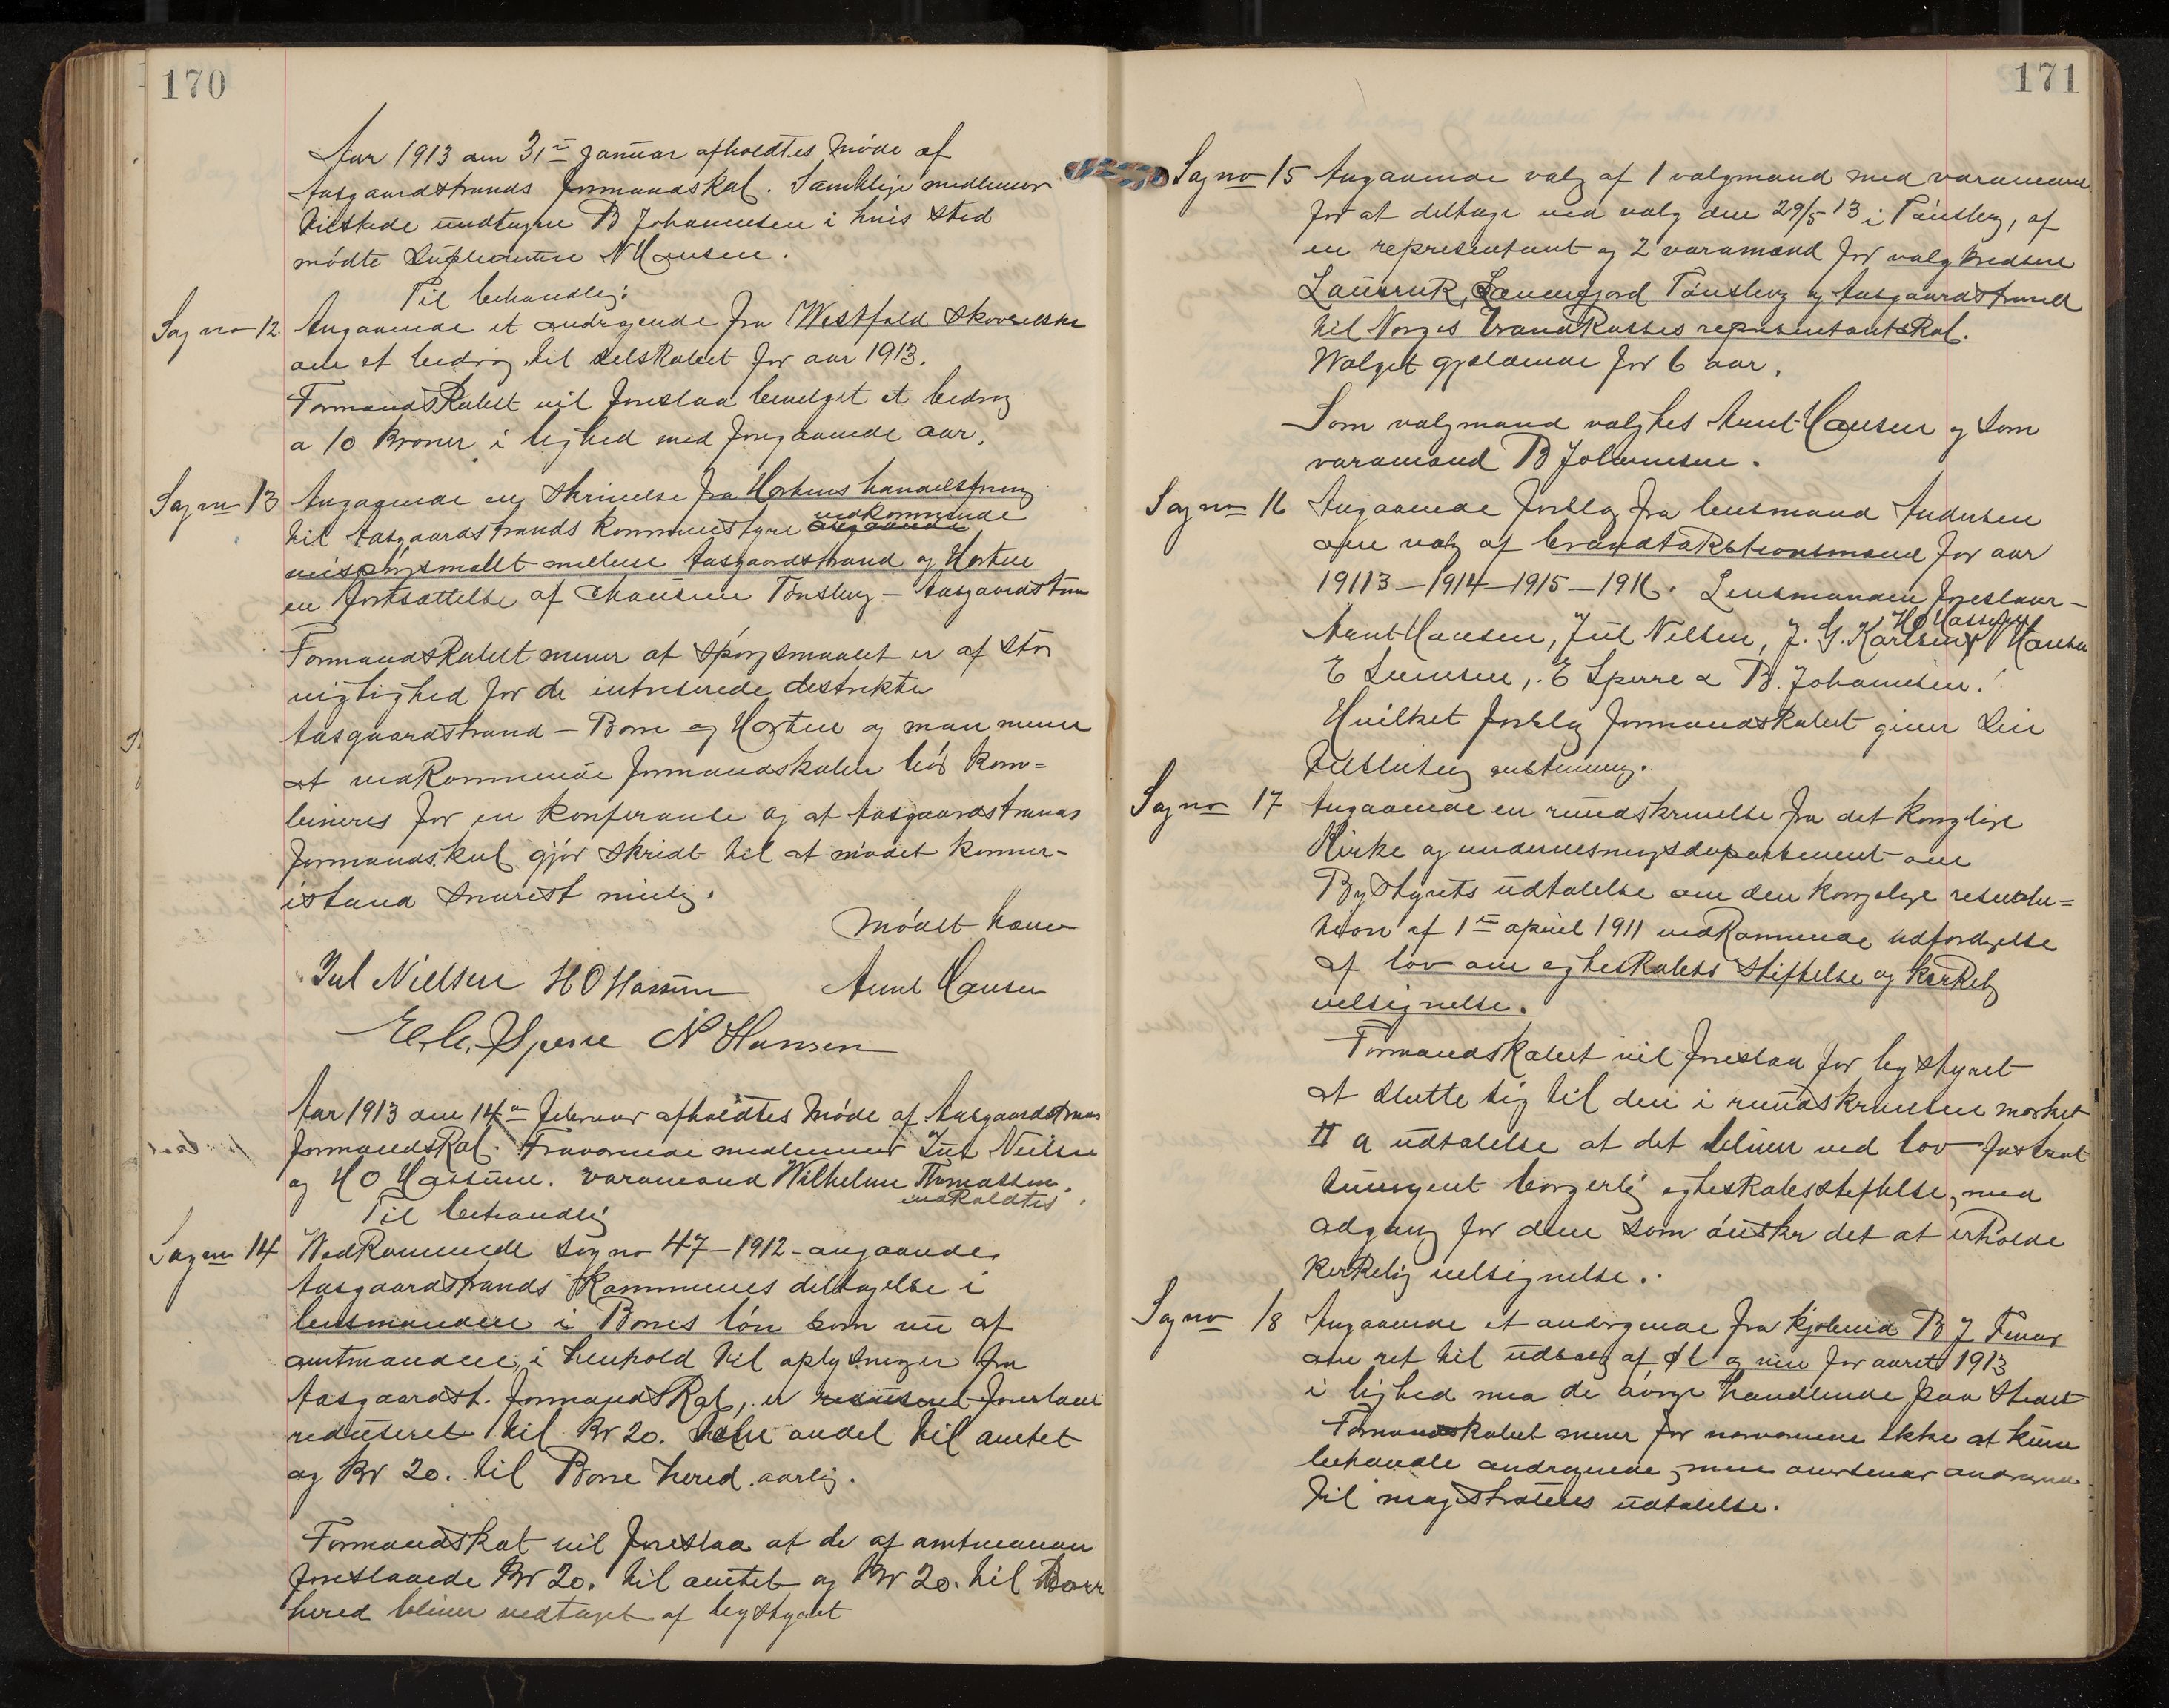 170
Aar 1913 den 31te Januar afholdtes Møde af
Aasgaardstrands formandskab. Samtlige medlemer
tilstede undtagen B Johannesen i hvis sted
mødte Supleanten N Hansen.
Til behandlig:
Sag no 12 Angaaende et andragende fra Westfold Skovselskab
om et bedrag til selskabet for aar 1913.
Formandskabet vil foreslaa bevelget et bedrag
a 10 kroner i lighed med foregaaende aar.
Sag no 13 Angaaende en skrivelse fra Hortens handelsforening
til Aasgaardstrands kommunestyre angaaende vedkommende
veispørsmallet mellem Aasgaardstrand og Horten
en fortsættelse af Chauseen Tønsberg – Aasgaardstran
Formandskabet mener at spørgsmaalet er af stor
vigtighed for de intreserede destrekter
Aasgaardstrand – Borre og Horten og man mener
at vedkommende formandskaber bør kom=
bineres for en konferanse og at Aasgaardstrands
formandskab gjør skridt til at mødet kommer
istand snarest mulig.
Mødet hævet
Jul Nielsen H O Hassum Arnt Hansen
E. C. Sperre N Hansen
Aar 1913 den 14de Februar afholdtes Møde af Aasgaardstrans
formandskab. Fraværende medlemmer Jul Neilsen
og H O Hassum. varamand Wilhelm Thomassen
indkaldtes
Til behandlig
Sag no 14 Wedkommende sag no 47–1912 – angaaende
Aasgaardstrands Kommunes deltagelse i
lensmanden i Borres løn som nu af
amtmanden, i henhold til oplysninger fra
Aasgaardst. formandskab, er reduseret foreslaaet
reduseret til kr 20. andel til amtet
og kr 20. til Borre hered aarlig.
Formandskab vil foreslaa at de af amtmanden
foreslaaede kr 20. til amtet og kr 20. til Borre
hered bliver vedtaget af bystyret
171
Sag no 15 Angaaende valg af 1 valgmand med varamand
for at deltage ved valg den 29/5 13 i Tønsberg, af
en representant og 2 varamænd for valgkredsene
Laurvik, Sandefjord Tønsberg og Aasgaardstrand
til Norges brandkasses representantskab.
Walget gjældende for 6 aar.
Som valgmand valgtes Arnt Hansen og som
varamand B Johannesen.
Sag no 16 Angaaende forslag fra lensmand Andersen
om valg af brandtakstionsmænd for aar
19113–1914–1915–1916. Lensmanden foreslaar –
H O Hassum
Arnt Hansen, Jul Nelsen, J. G. Karlsen, N Hansen
E Sperre & B. Johannesen.
Hvilket forslag formandskabet giver sin
tilslutning enstemmig.
Sag no 17 Angaaende en rundskrivelse fra det konglige
Kirke og undervesningsdepartement om
Bystyrets udtalelse om den kongelige resolu=
tion af 1ste april 1911 vedkommende udfordigelse
af lov om egteskabets stiftelse og kirkelig
velsignelse.
Formandskabet vil foreslaa for bystyret
at slutte sig til den i rundskrivelsen merket
II a udtalelse at det bliver ved lov fastsat
tvungent borgerlig egteskabsstiftelse, med
adgang for dem som ønsker det at erholde
kirkelig velsignelse.
Sag no 18 Angaaende et andragende fra kjøbmd B J
om ret til udsalg af øl og vin for aaret 1913
i lighed med de øvrige handlende paa stedet
Formandskabet mener for nærværende ikke at kunne
behandle andragende, men oversender andragende
til magistratens udtalelse.